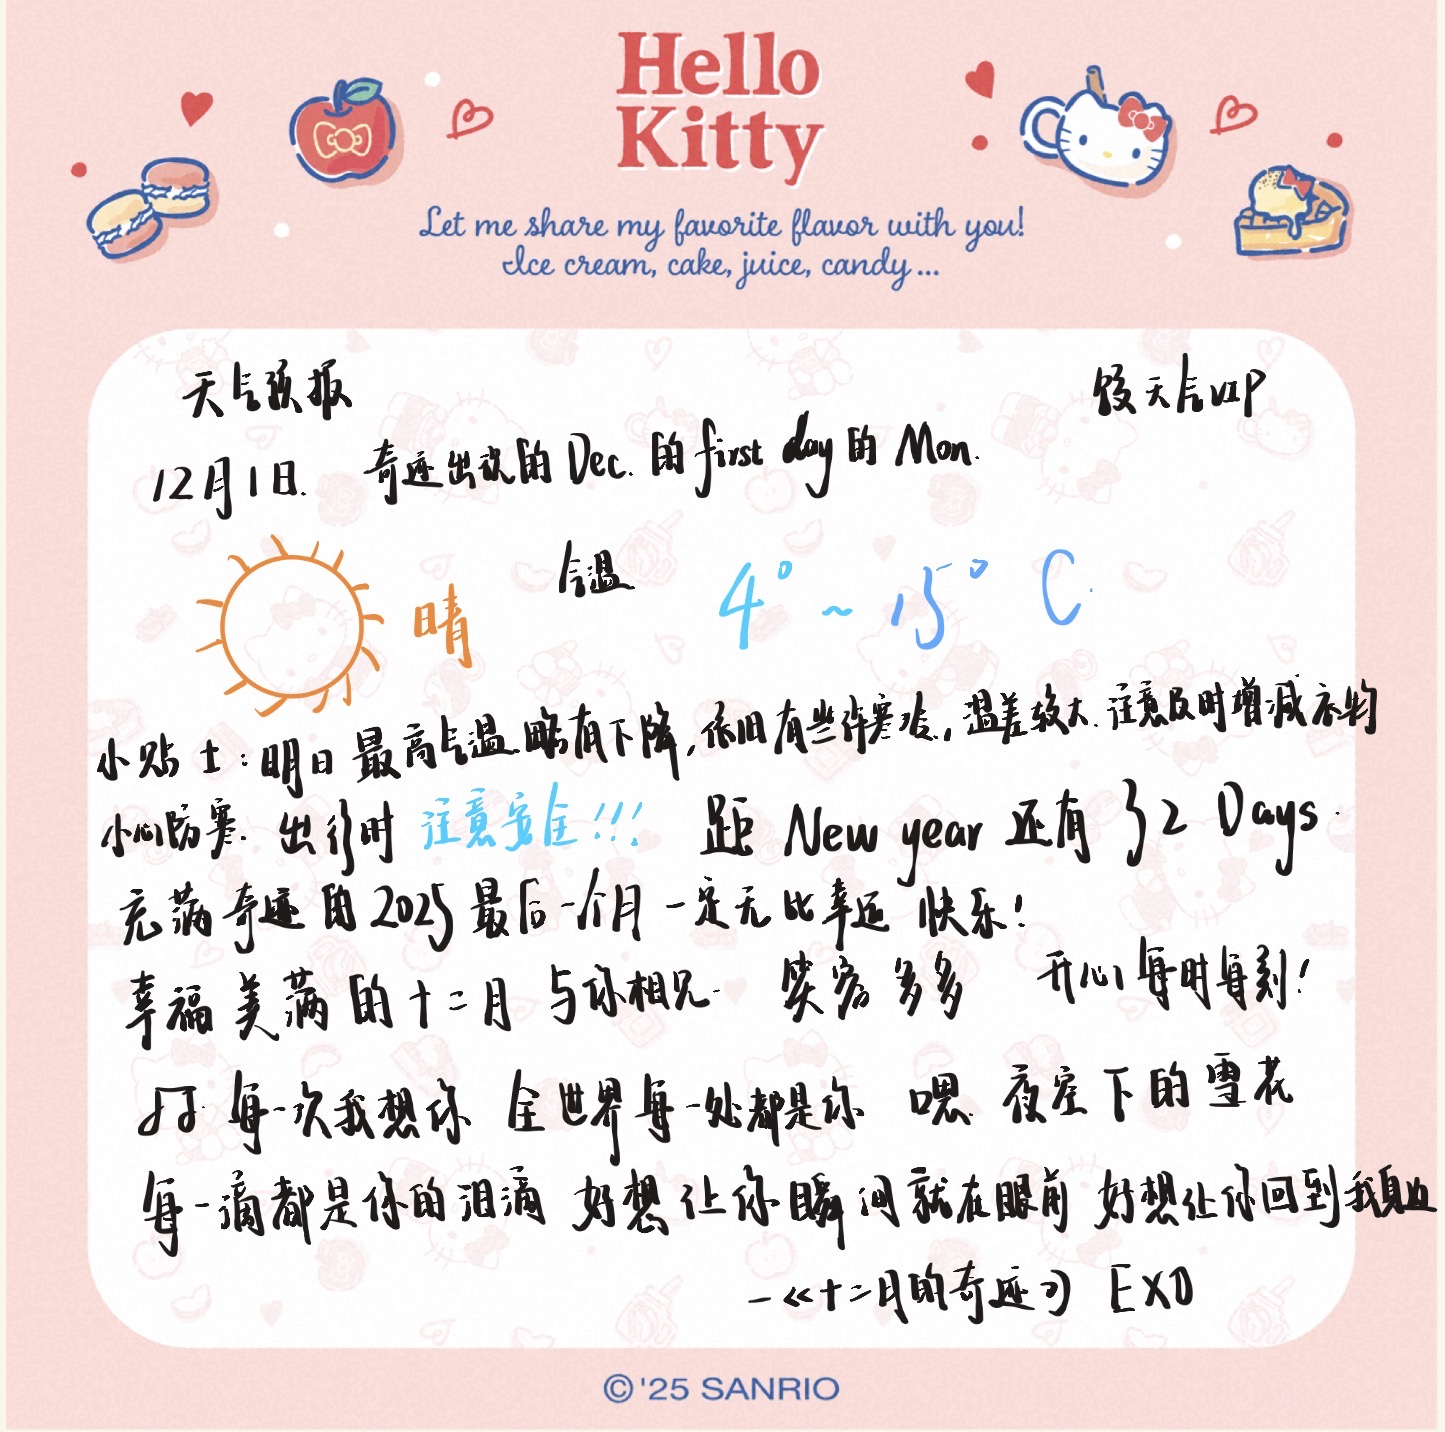 Hello
Kitty
Let me share my favorite flavor with you!
Ice cream, cake, juice, candy...
天气预报
天气VIP
12月1日. 奇迹出没的 Dec. 的 first day 的 Mon.
晴
气温 4°~15°C
小贴士:明日最高气温略有下降,依旧有些许寒冷,温差较大.注意及时增减衣物
小心防寒. 出行时 注意安全!!! 距 New year 还有 32 Days.
充满奇迹的2025最后一个月一定无比幸运 快乐!
幸福美满的十二月 与你相见. 笑容多多 开心每时每刻!
♫ 每一次我想你 全世界每一处都是你 嗯 夜空下的雪花
每一滴都是你的泪滴 好想让你瞬间就在眼前 好想让你回到我身边
—《十二月的奇迹》EXO
©'25 SANRIO